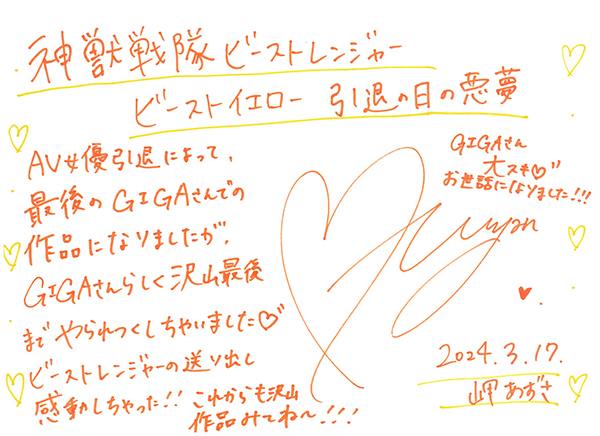 神獣戦隊ビーストレンジャー
ビーストイエロー 引退の日の悪夢
AV女優引退によって、
最後のGIGAさんでの
作品になりましたが、
GIGAさんらしく沢山最後
までやられつくしちゃいました♡
ビーストレンジャーの送り出し
感動しちゃった!!
これからも沢山
作品みてね〜!!!
GIGAさん
大スキ♡
お世話になりました!!!
2024.3.17.
岬あずさ